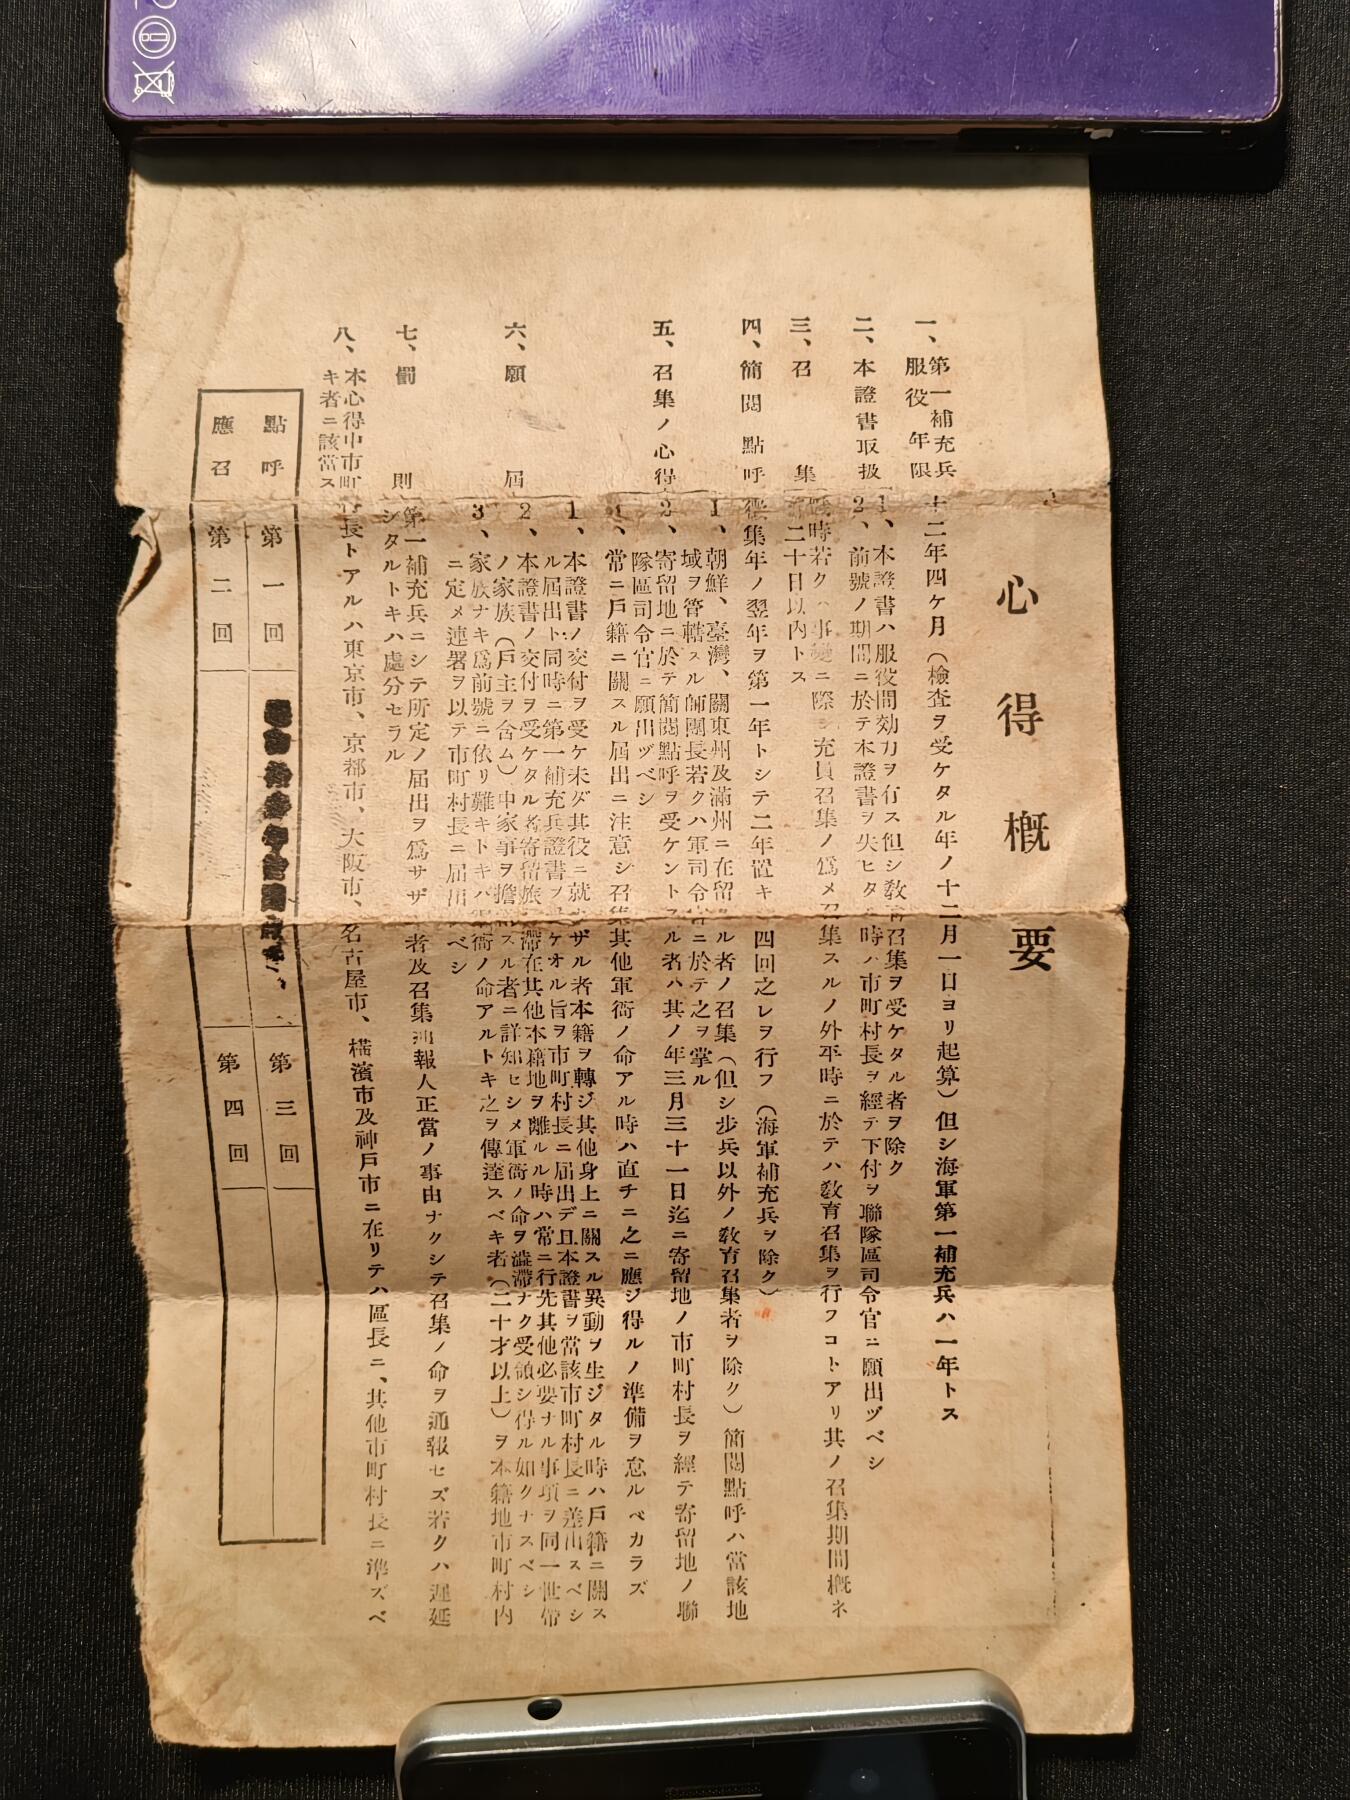 心得概要
一、第一補充兵
服役年限
十二年四ケ月（檢査ヲ受ケタル年ノ十二月一日ヨリ起算）但シ海軍第一補充兵ハ一年トス
二、本證書取扱
1、本證書ハ服役間効力ヲ有ス但シ敎育召集ヲ受ケタル者ヲ除ク
2、前號ノ期間ニ於テ本證書ヲ失ヒタル時ハ市町村長ヲ經テ下付ヲ聯隊區司令官ニ願出ヅベシ
三、召集
戰時若クハ事變ニ際シ充員召集ノ爲メ召集スルノ外平時ニ於テハ敎育召集ヲ行フコトアリ其ノ召集期間槪ネ
百二十日以内トス
四、簡閲點呼
徵集年ノ翌年ヲ第一年トシテ二年置キ四回之レヲ行フ（海軍補充兵ヲ除ク）
五、召集ノ心得
1、朝鮮、臺灣、關東州及滿州ニ在留スル者ノ召集（但シ步兵以外ノ敎育召集者ヲ除ク）簡閲點呼ハ當該地
域ヲ管轄スル師團長若クハ軍司令官ニ於テ之ヲ掌ル
2、寄留地ニ於テ簡閲點呼ヲ受ケントスル者ハ其ノ年三月三十一日迄ニ寄留地ノ市町村長ヲ經テ寄留地ノ聯
隊區司令官ニ願出ヅベシ
常ニ戶籍ニ關スル届出ニ注意シ召集其他軍衙ノ命アル時ハ直チニ之ニ應ジ得ルノ準備ヲ怠ルベカラズ
六、願届
1、本證書ノ交付ヲ受ケ未ダ其役ニ就カザル者本籍ヲ轉ジ其他身上ニ關スル異動ヲ生ジタル時ハ戶籍ニ關ス
ル届出ト同時ニ第一補充兵證書ヲ受ケオル旨ヲ市町村長ニ届出デ且本證書ヲ當該市町村長ニ差出スベシ
2、本證書ノ交付ヲ受ケタル者寄留旅行滯在其他本籍地ヲ離ルル時ハ常ニ行先其他必要ナル事項ヲ同一世帶
ノ家族（戶主ヲ含ム）中家事ヲ擔當スル者ニ詳知セシメ軍衙ノ命ヲ澁滯ナク受領シ得ル如クナスベシ
3、家族ナキ爲前號ニ依リ難キトキハ軍衙ノ命アルトキ之ヲ傳達スベキ者（二十才以上）ヲ本籍地市町村内
ニ定メ連署ヲ以テ市町村長ニ届出ベシ
七、罰則
第一補充兵ニシテ所定ノ届出ヲ爲サザル者及召集通報人正當ノ事由ナクシテ召集ノ命ヲ通報セズ若クハ遲延
シタルトキハ處分セラル
八、本心得中市町村長トアルハ東京市、京都市、大阪市、名古屋市、橫濱市及神戶市ニ在リテハ區長ニ、其他市町村長ニ準ズベ
キ者ニ該當ス
點呼 第一回 第三回
應召 第二回 第四回